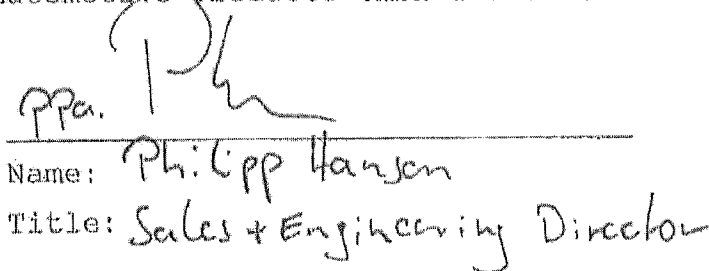 ppa.
Name: Philipp Hansen
Title: Sales + Engineering Director